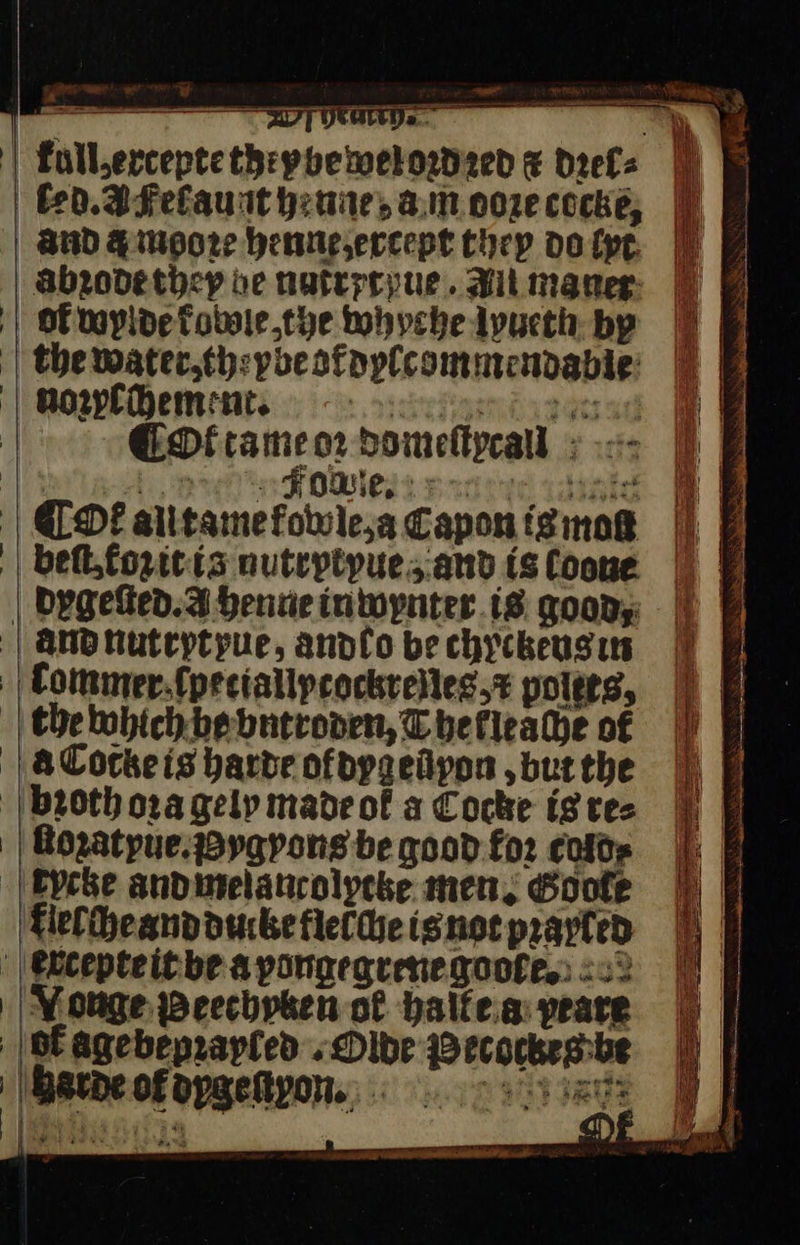 full, excepte they be wel ordred & dres=
sed. A Fesaunt henne, a moore cocke,
and a moore henne, except they do syt
abrode they be nutrytyue. All maner
of wylde fowle, the whyche lyueth by
the water, they be of dyscommendable
norysshement.
¶ Of tame or domestycall
Fowle.
¶ Of all tame fowle, a Capon is most
best, for it is nutrytyue, and is soone
dygested. A henne in wynter is good,
and nutrytyue, and so be chyckens in
sommer, specially cockrelles, & polets,
the which be vntroden, The fleashe of
a Cocke is harde of dygestyon, but the
broth or a gely made of a Cocke is res
storatyue. Pygyons be good for colo
rycke and melancolycke men. Goose
flesshe and ducke flesshe is not praysed
excepte it be a yonge grene goose.
Yonge Peechyken of halfe a yeare
of age be praysed. Olde Pecockes be
harde of dygestyon.
Of